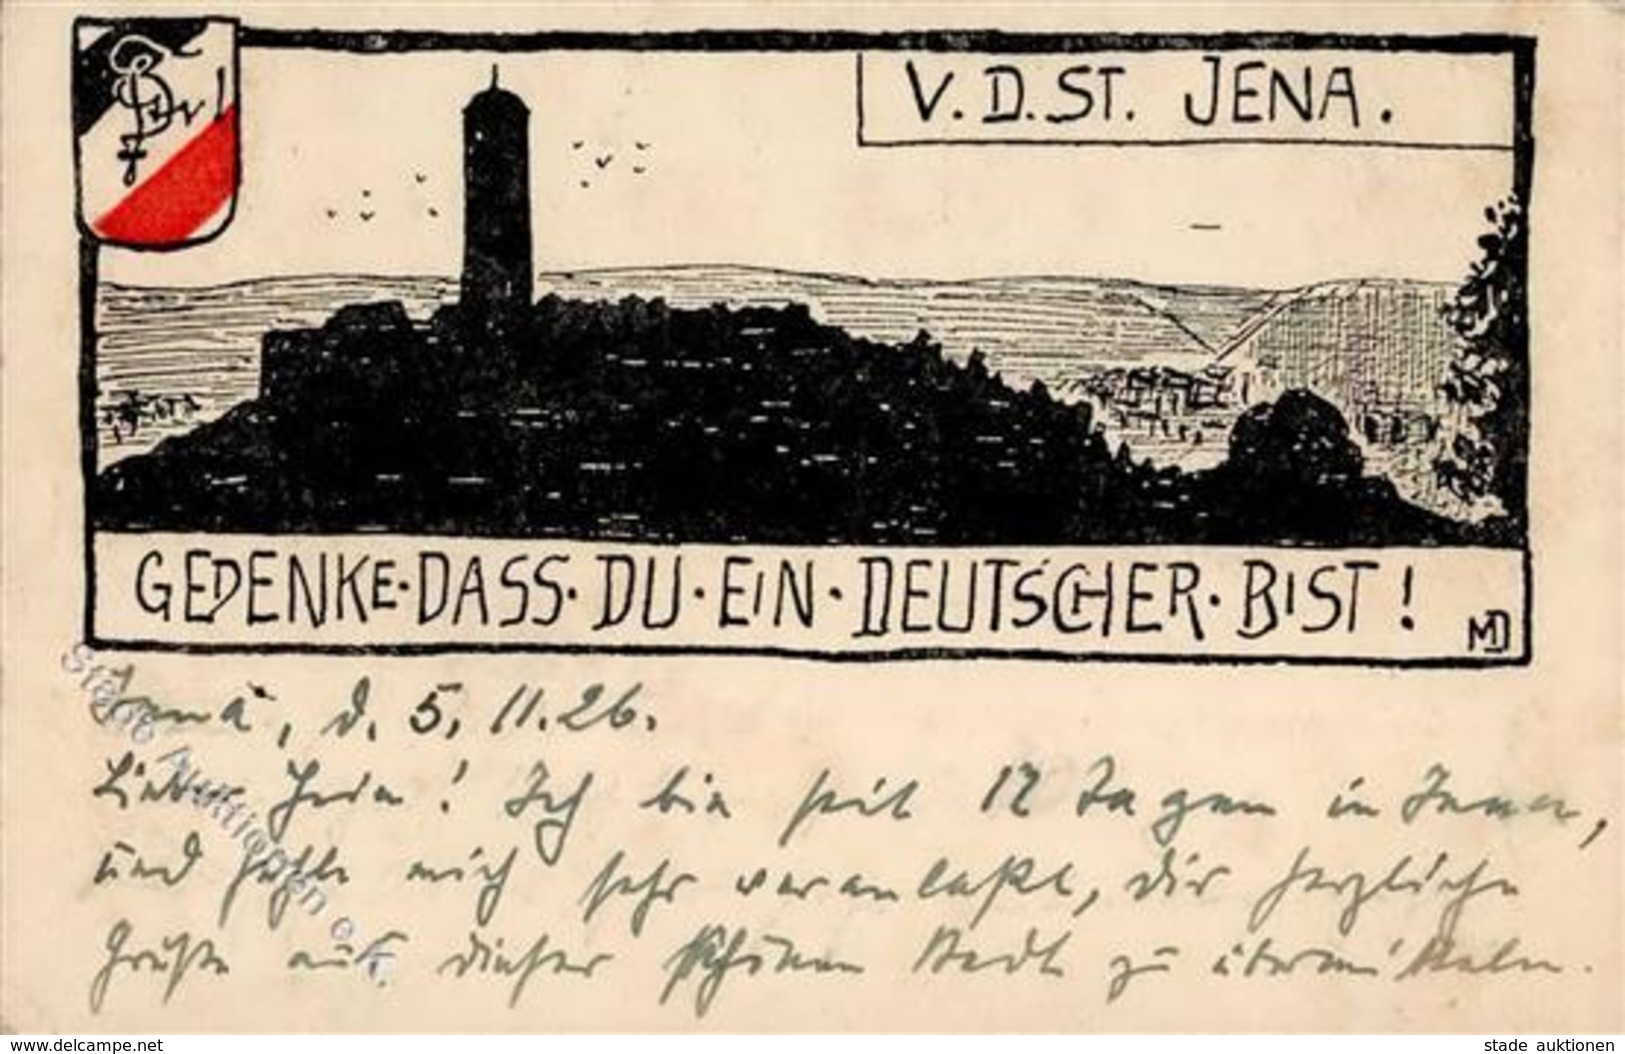 V. D. ST. JENA.
GEDENKE · DASS · DU · EIN · DEUTSCHER · BIST !
MD
Jena, d. 5. 11. 26.
Lieber ! Ich bin seit 12 Tagen in Jena,
und fühle mich sehr veranlaßt, dir herzliche
Grüße aus dieser schönen Stadt zu übermitteln.
www.delcampe.net
stade auktionen